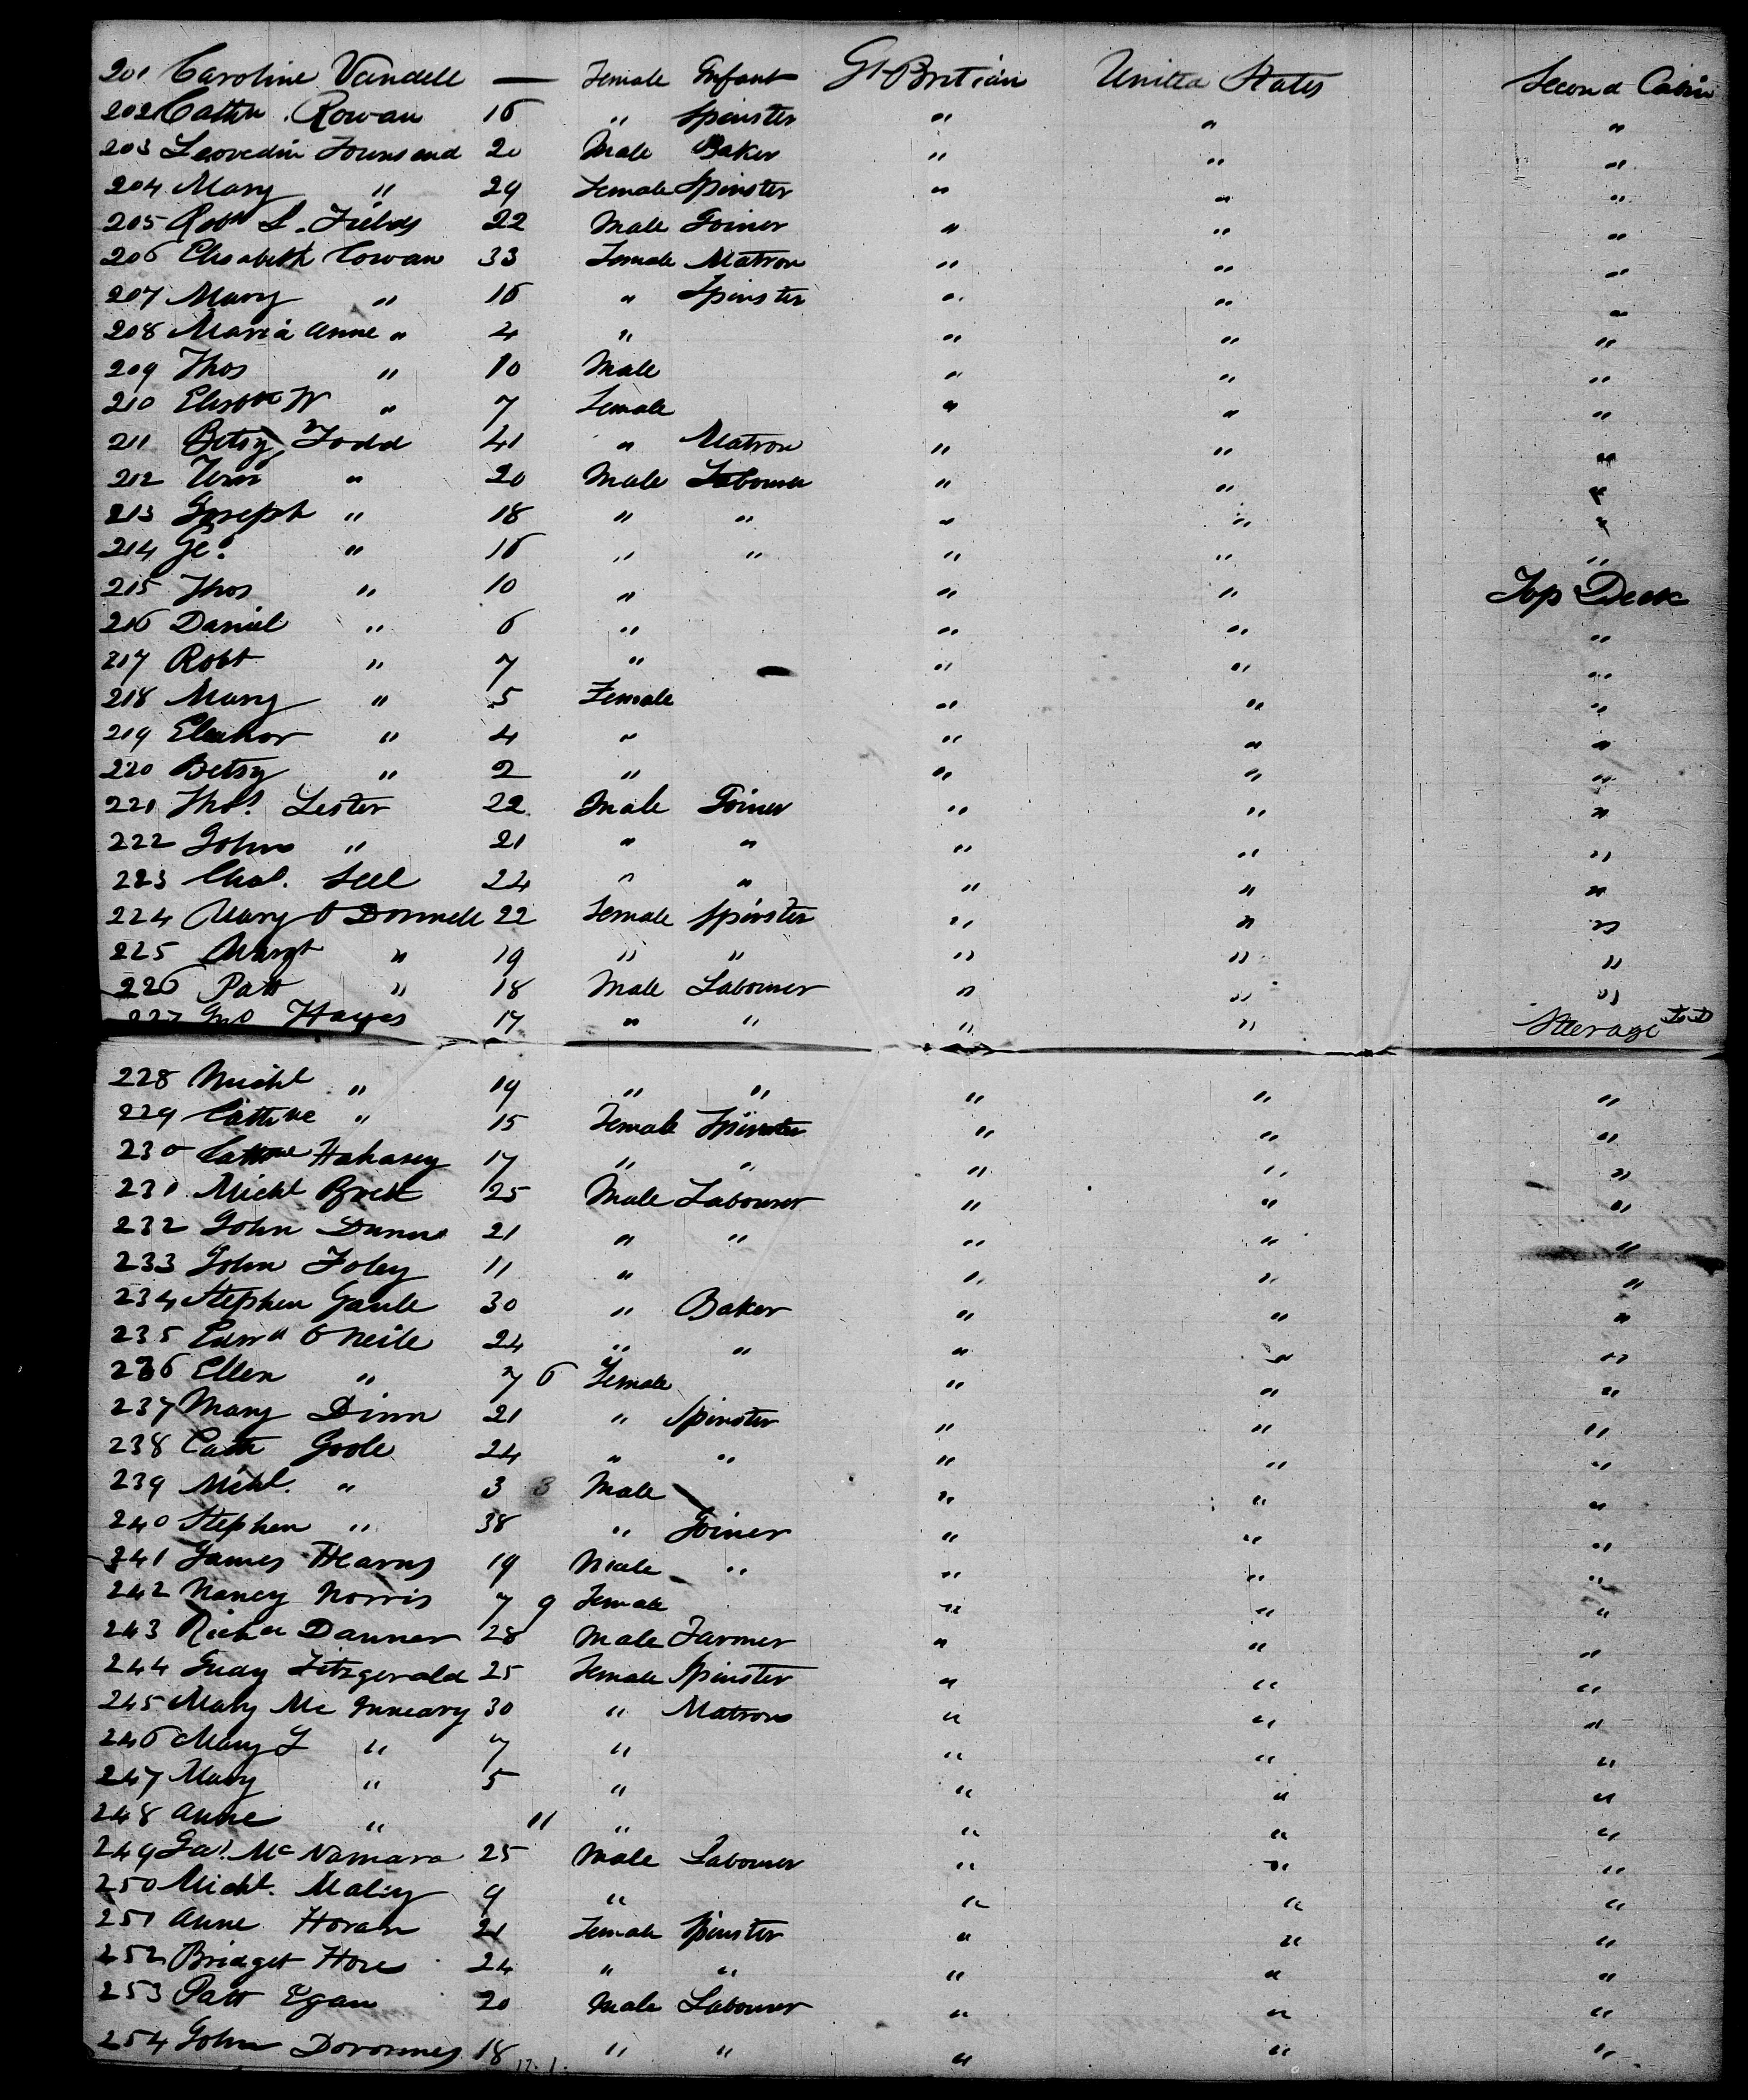 201 Caroline Vandell — Female Infant Gt Britian United States Second Cabin
202 Cathn Rowan 16 " Spinster " " "
203 Townsend 20 Male Baker " " "
204 Mary " 29 Female Spinster " " "
205 Robt L. Fields 22 Male Joiner " " "
206 Elisabeth Cowan 33 Female Matron " " "
207 Mary " 16 " Spinster " " "
208 Maria Anne " 4 " " " "
209 Thos " 10 Male " " "
210 Elisbth W " 7 Female " " "
211 Betsy Todd 41 " Matron " " "
212 Wm " 20 Male Labourer " " "
213 Joseph " 18 " " " " "
214 Geo. " 16 " " " " "
215 Thos " 10 " " " Top Deck
216 Daniel " 6 " " " "
217 Robt " 7 " " " "
218 Mary " 5 Female " " "
219 Eleanor " 4 " " " "
220 Betsy " 2 " " " "
221 Thos. Lester 22 Male Joiner " " "
222 John " 21 " " " " "
223 Chas. Seel 24 " " " " "
224 Mary O Donnell 22 Female Spinster " " "
225 Margt " 19 " " " " "
226 Patt " 18 Male Labourer " " "
227 Jno Hayes 17 " " " " Steerage
228 Michl " 19 " " " " "
229 Cathne " 15 Female Spinster " " "
230 Cathne Hahasey 17 " " " " "
231 Michl Brett 25 Male Labourer " " "
232 John Dunne 21 " " " " "
233 John Foley 11 " " " "
234 Stephen Gaule 30 " Baker " " "
235 Edwd O Neile 24 " " " " "
236 Ellen " 7 6 Female " " "
237 Mary Dinn 21 " Spinster " " "
238 Cath Goole 24 " " " " "
239 Michl. " 3 3 Male " " "
240 Stephen " 38 " Joiner " " "
241 James Hearns 19 Male " " " "
242 Nancy Norris 7 9 Female " " "
243 Richd Danner 28 Male Farmer " " "
244 Judy Fitzgerald 25 Female Spinster " " "
245 Mary Mc 30 " Matron " " "
246 Mary " 7 " " " "
247 Mary " 5 " " " "
248 Anne " 11 " " " "
249 Jas. Mc Namara 25 Male Labourer " " "
250 Michl. 9 " " " "
251 Anne Horan 21 Female Spinster " " "
252 Bridget Hore 24 " " " " "
253 Patt Egan 20 Male Labourer " " "
254 John 18 " " " " "